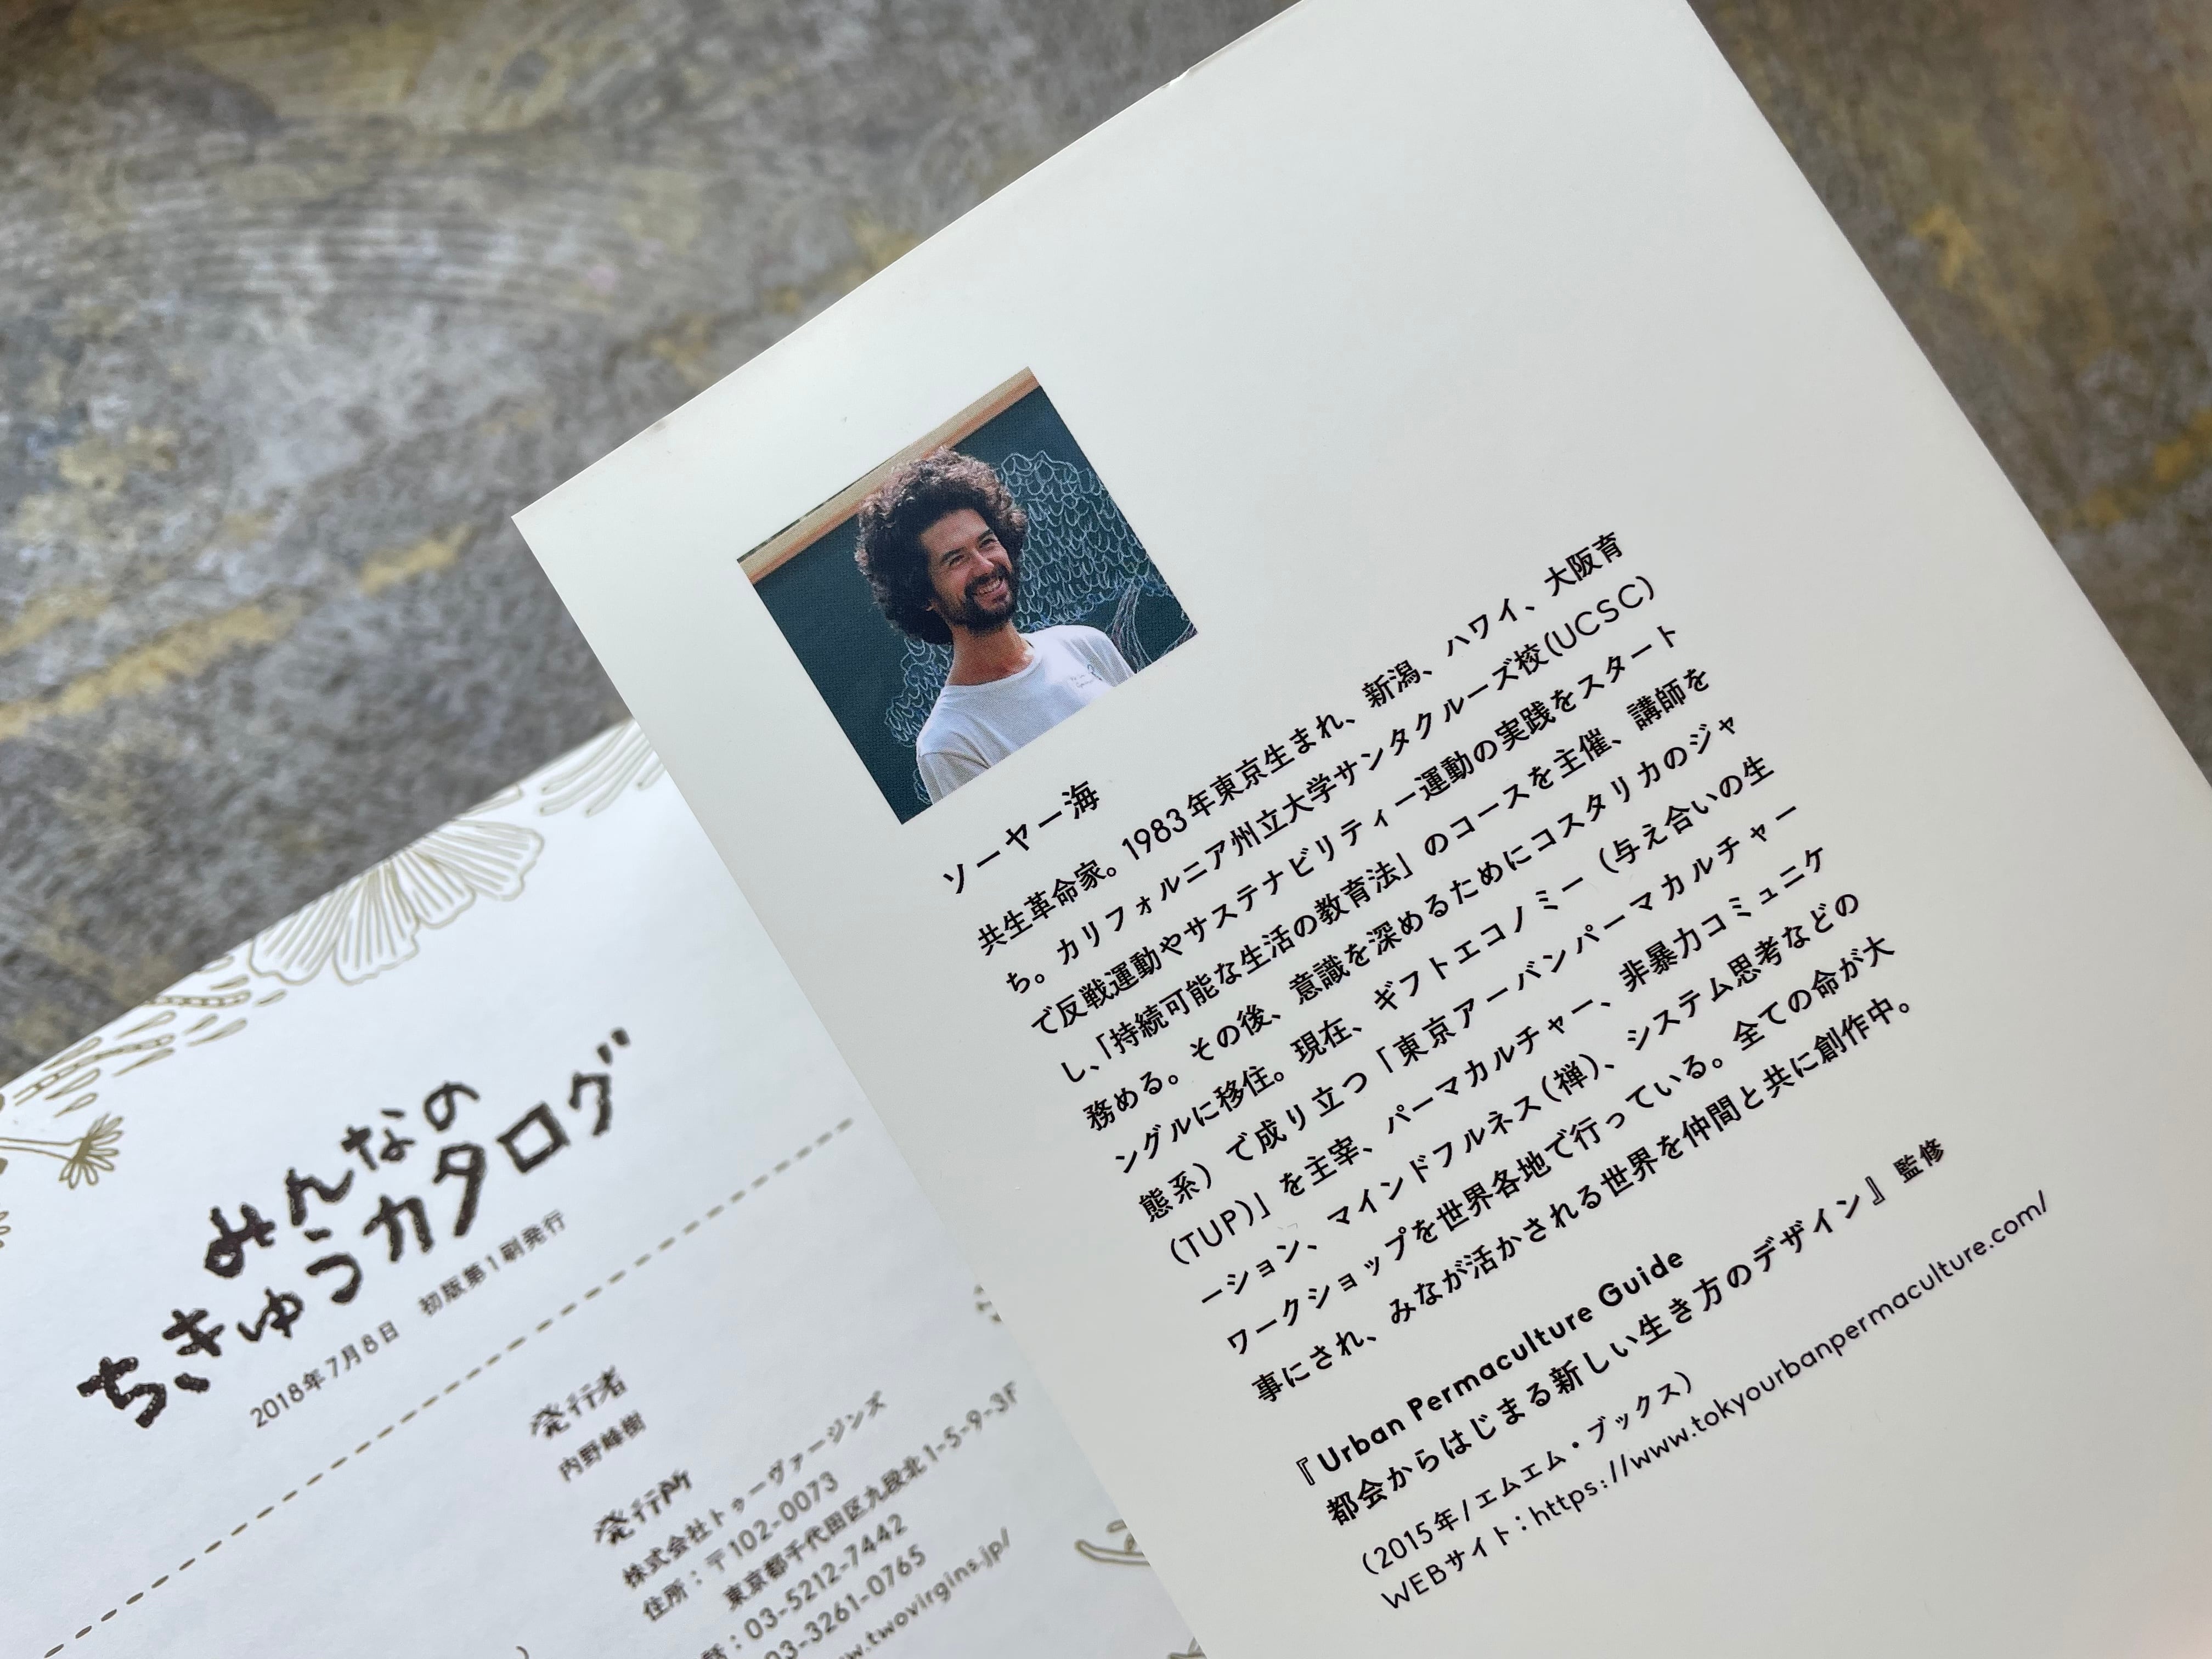 ソーヤー海
共生革命家。1983年東京生まれ、新潟、ハワイ、大阪育
ち。カリフォルニア州立大学サンタクルーズ校(UCSC)
で反戦運動やサステナビリティー運動の実践をスタート
し、「持続可能な生活の教育法」のコースを主催、講師を
務める。その後、意識を深めるためにコスタリカのジャ
ングルに移住。現在、ギフトエコノミー（与え合いの生
態系）で成り立つ「東京アーバンパーマカルチャー
(TUP)」を主宰、パーマカルチャー、非暴力コミュニケ
ーション、マインドフルネス(禅)、システム思考などの
ワークショップを世界各地で行っている。全ての命が大
事にされ、みなが活かされる世界を仲間と共に創作中。
『Urban Permaculture Guide
都会からはじまる新しい生き方のデザイン』監修
(2015年/エムエム・ブックス)
WEBサイト：https://www.tokyourbanpermaculture.com/
みんなの
ちきゅうカタログ
2018年7月8日 初版第1刷発行
発行者
内野峰樹
発行所
株式会社トゥーヴァージンズ
住所：〒102-0073
東京都千代田区九段北1-5-9-3F
話：03-5212-7442
03-3261-0765
ww.twovirgins.jp/